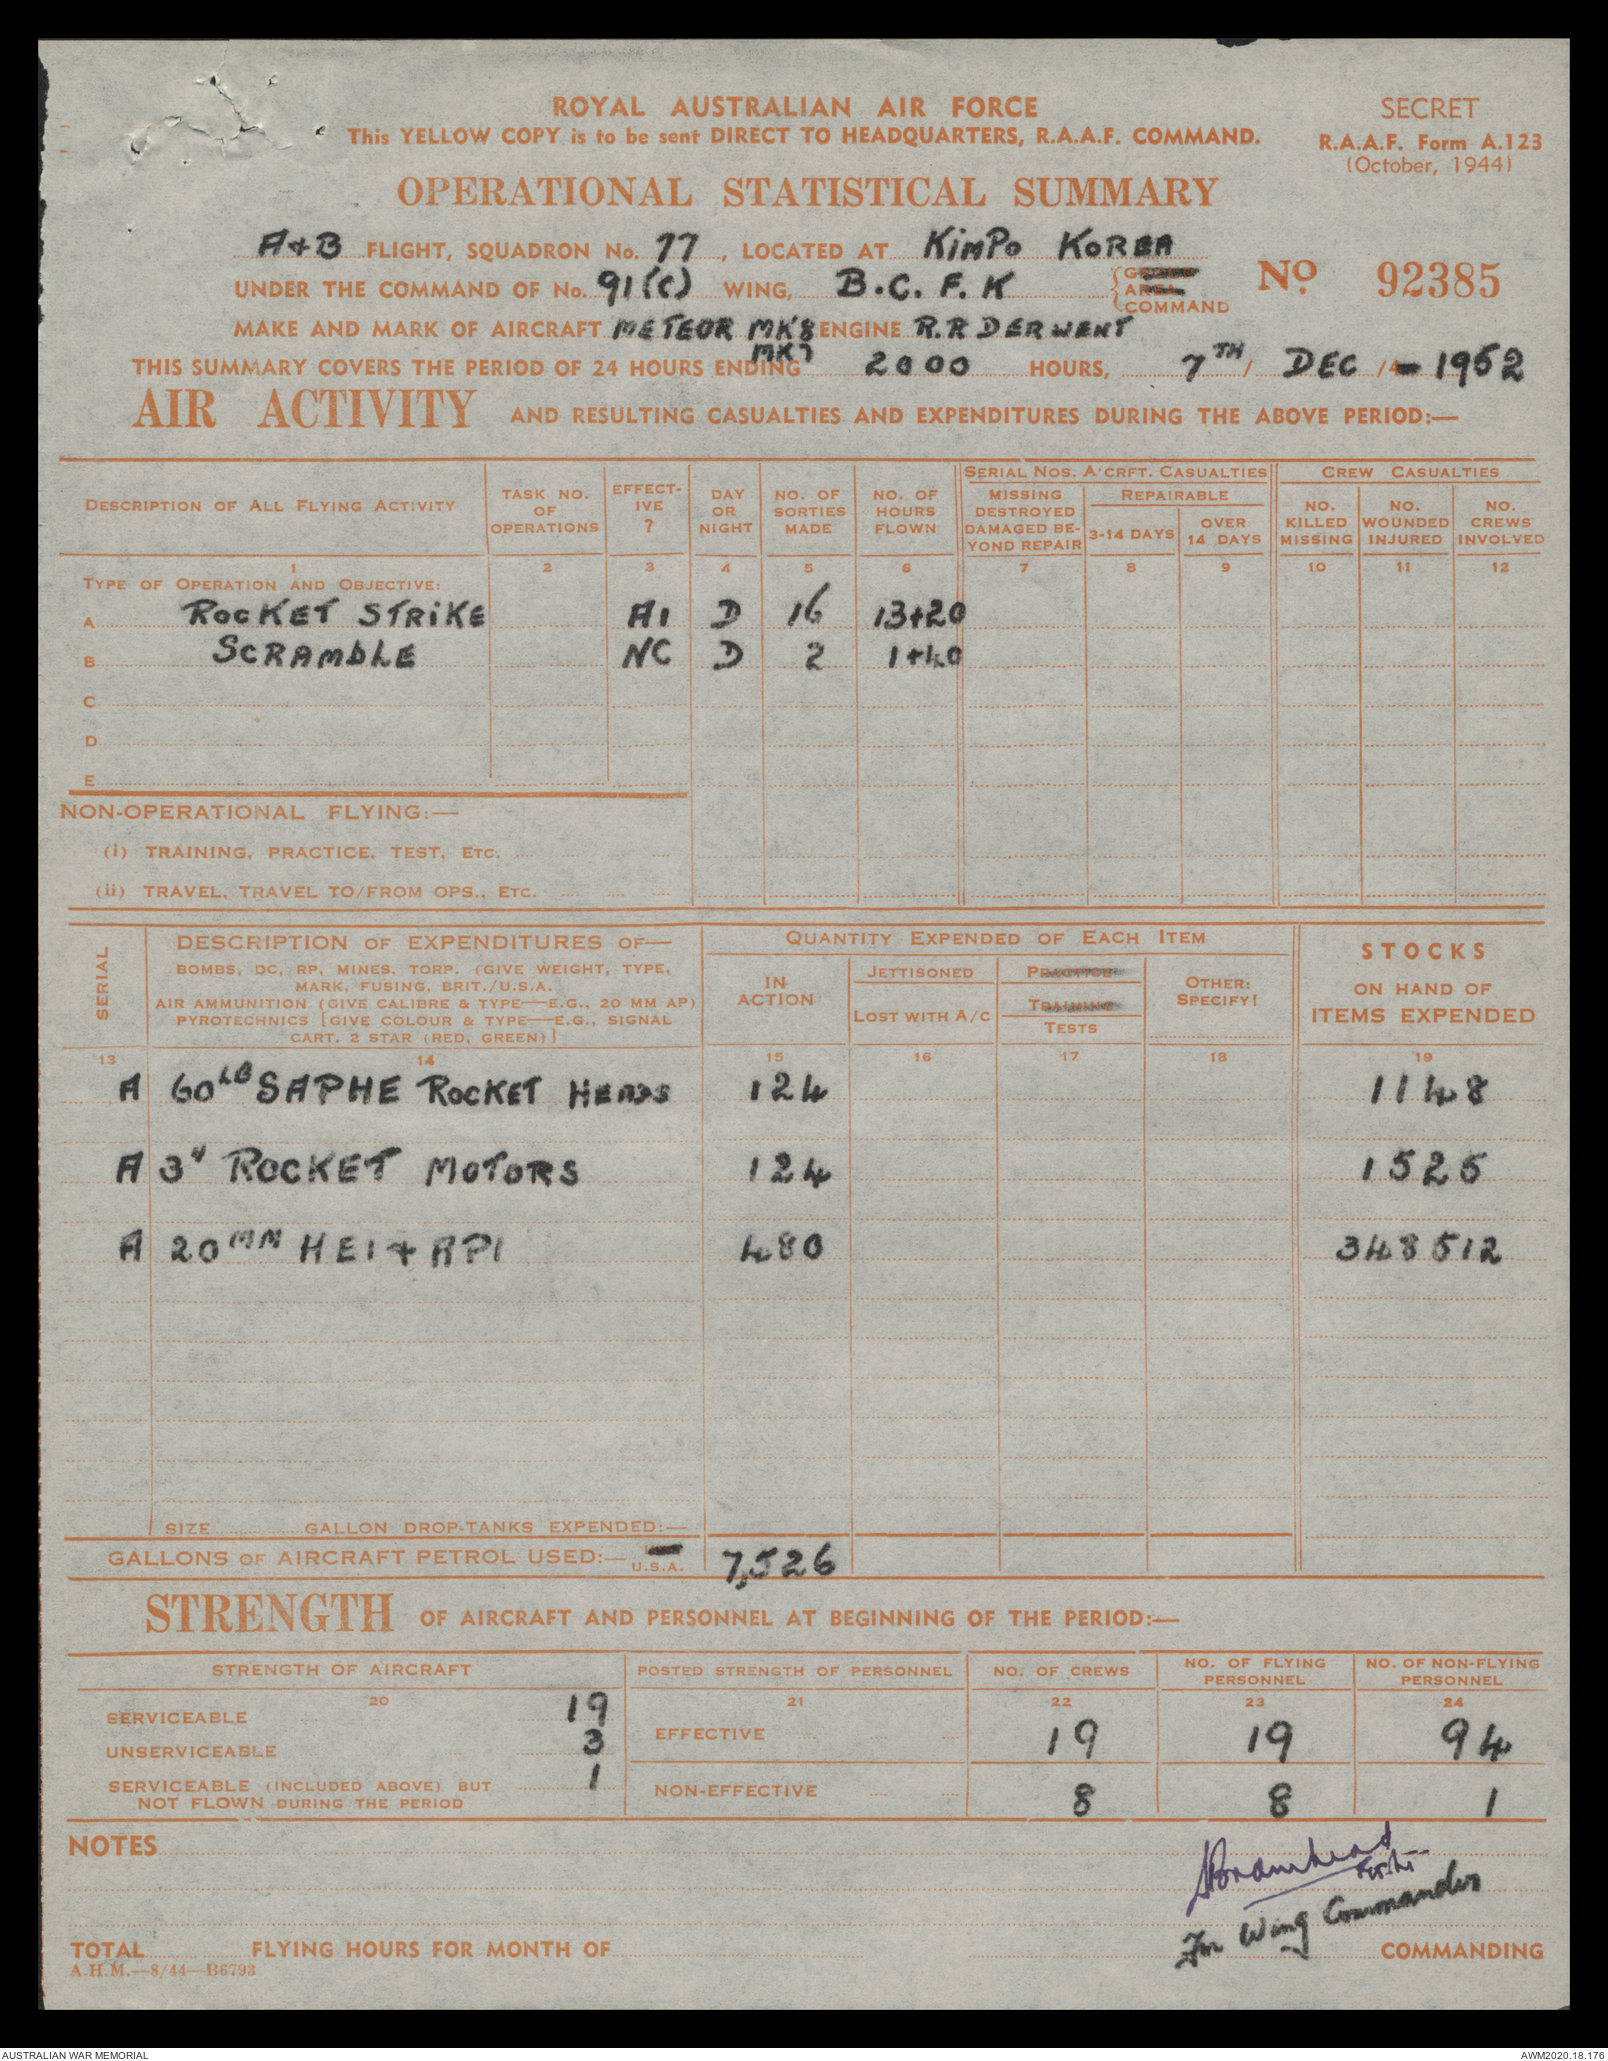 ROYAL AUSTRALIAN AIR FORCE
This YELLOW COPY is to be sent DIRECT TO HEADQUARTERS, R.A.A.F. COMMAND.
SECRET
R.A.A.F. Form A.123
(October, 1944)
OPERATIONAL STATISTICAL SUMMARY
A+B FLIGHT, SQUADRON No. 77, LOCATED AT KIMPO KOREA
UNDER THE COMMAND OF No. 91(C) WING, B.C.F.K COMMAND
No. 92385
MAKE AND MARK OF AIRCRAFT METEOR MK'8 ENGINE R.R DERWENT
MK7
THIS SUMMARY COVERS THE PERIOD OF 24 HOURS ENDING 2000 HOURS, 7TH / DEC / - 1952
AIR ACTIVITY AND RESULTING CASUALTIES AND EXPENDITURES DURING THE ABOVE PERIOD:—
DESCRIPTION OF ALL FLYING ACTIVITY
TASK NO. OF OPERATIONS
EFFECT-IVE ?
DAY OR NIGHT
NO. OF SORTIES MADE
NO. OF HOURS FLOWN
SERIAL NOS. A'CRFT. CASUALTIES
MISSING DESTROYED DAMAGED BE-YOND REPAIR
REPAIRABLE
3-14 DAYS
OVER 14 DAYS
CREW CASUALTIES
NO. KILLED MISSING
NO. WOUNDED INJURED
NO. CREWS INVOLVED
1 2 3 4 5 6 7 8 9 10 11 12
TYPE OF OPERATION AND OBJECTIVE:
A ROCKET STRIKE A1 D 16 13+20
B SCRAMBLE NC D 2 1+40
C
D
E
NON-OPERATIONAL FLYING:—
(i) TRAINING, PRACTICE, TEST, ETC.
(ii) TRAVEL, TRAVEL TO/FROM OPS., ETC.
SERIAL
DESCRIPTION OF EXPENDITURES OF—
BOMBS, DC, RP, MINES, TORP. (GIVE WEIGHT, TYPE,
MARK, FUSING, BRIT./U.S.A.
AIR AMMUNITION (GIVE CALIBRE & TYPE—E.G., 20 MM AP)
PYROTECHNICS [GIVE COLOUR & TYPE—E.G., SIGNAL
CART. 2 STAR (RED, GREEN)]
QUANTITY EXPENDED OF EACH ITEM
IN ACTION
JETTISONED
LOST WITH A/C
PRACTICE
TRAINING
TESTS
OTHER: SPECIFY!
STOCKS
ON HAND OF
ITEMS EXPENDED
13 14 15 16 17 18 19
A 60LB SAPHE ROCKET HEADS 124 1148
A 3" ROCKET MOTORS 124 1525
A 20MM HEI + API 480 348512
SIZE GALLON DROP-TANKS EXPENDED:—
GALLONS OF AIRCRAFT PETROL USED:— U.S.A. 7,526
STRENGTH OF AIRCRAFT AND PERSONNEL AT BEGINNING OF THE PERIOD:—
STRENGTH OF AIRCRAFT
POSTED STRENGTH OF PERSONNEL
NO. OF CREWS
NO. OF FLYING PERSONNEL
NO. OF NON-FLYING PERSONNEL
20 21 22 23 24
SERVICEABLE 19
UNSERVICEABLE 3
SERVICEABLE (INCLUDED ABOVE) BUT
NOT FLOWN DURING THE PERIOD 1
EFFECTIVE 19 19 94
NON-EFFECTIVE 8 8 1
NOTES
For Wing Commander
TOTAL FLYING HOURS FOR MONTH OF COMMANDING
A.H.M.—8/44—B6793
AUSTRALIAN WAR MEMORIAL
AWM2020.18.176